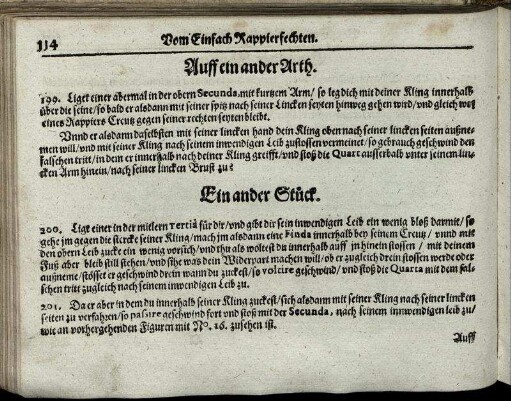 114
Vom Einfach Rappierfechten.
Auff ein ander Arth.
199. Liget einer abermal in der obern Secunda mit kurtzem Arm/ so leg dich mit deiner Kling innerhalb
über die seine/ so bald er alsdann mit seiner spitz nach seiner Lincken seyten hinweg gehen wird/ und gleich wol
eines Rappiers Creutz gegen seiner rechten seyten bleibt.
Unnd er alsdann daselbsten mit seiner lincken hand dein Kling oben nach seiner lincken seiten außne-
men will/ und mit seiner Kling nach seinem inwendigen Leib zustossen vermeinet/ so gebrauch geschwind den
falschen tritt/ in dem er innerhalb nach deiner Kling greifft/ und stoß die Quart ausserhalb unter seinem lin-
cken Arm hinein/ nach seiner lincken Brust zu:
Ein ander Stück.
200. Ligt einer in der mitlern Tertia für dir/ und gibt dir sein inwendigen Leib ein wenig bloß darmit/ so
gehe jm gegen die stercke seiner Kling/ mach jm alsdann eine Finda innerhalb bey seinem Creutz/ unnd mit
den obern Leib zucke ein wenig vorsich/ und thu als woltest du innerhalb auff jn hinein stossen/ mit deinem
Fuß aber bleib still stehen/ und sihe was dein Widerpart machen will/ ob er zugleich drein stossen werde oder
außneme/ stösset er geschwind drein wann du zuckest/ so volcire geschwind/ und stoß die Quarta mit dem fal-
schen tritt zugleich nach seinem inwendigen Leib zu.
201. Da er aber in dem du innerhalb seiner Kling zuckest/ sich alsdann mit seiner Kling nach seiner lincken
seiten zu verfahren/ so passire geschwind fort und stoß mit der Secunda, nach seinem innwendigen leib zu/
wie an vorhergehenden Figuren mit No. 16. zusehen ist.
Auff